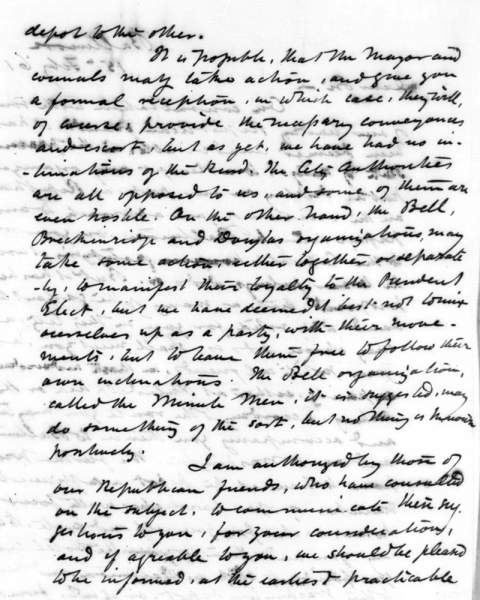 depot to the other.
It is possible, that the Mayor and
councils may take action, and give you
a formal reception, in which case, they will,
of course, provide the necessary conveyances
and escort, but as yet, we have had no in-
-timations of the kind. The City Authorities
are all opposed to us, and some of them are
even hostile. On the other hand, the Bell,
Breckinridge and Douglas organizations, may
take some action, either together or separate
-ly, to manifest their loyalty to the President
Elect, but we have deemed it best not to mix
ourselves up as a party, with their move-
ments, but to leave them free to follow their
own inclinations. The Bell organization,
called the Minute Men, it is suggested, may
do something of the sort, but nothing is known
positively.
I am authorized by those of
our Republican friends, who have consulted
on the subject, to communicate their sug-
gestions to you, for your consideration,
and if agreable to you, we should be pleased
to be informed, at the earliest practicable